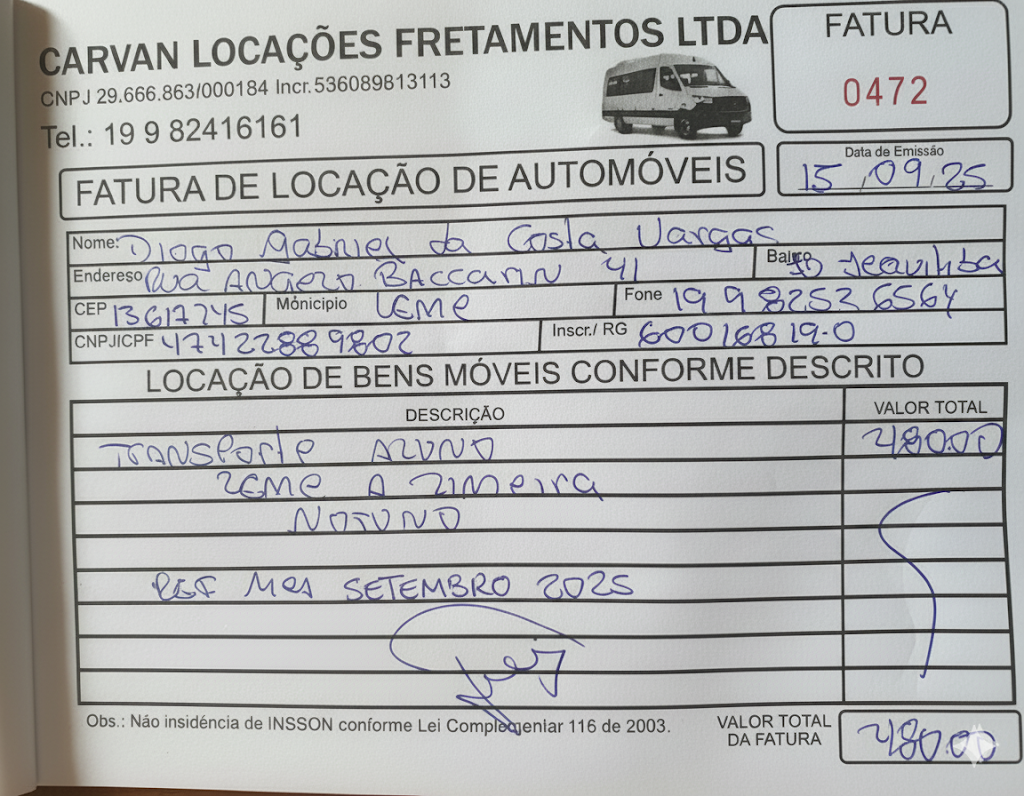 CARVAN LOCAÇÕES FRETAMENTOS LTDA
CNPJ 29.666.863/000184 Incr.536089813113
Tel.: 19 9 82416161
FATURA
0472
FATURA DE LOCAÇÃO DE AUTOMÓVEIS
Data de Emissão
15/09/25
Nome: Diogo Gabriel da Costa Vargas
Endereso Rua ANGELO BACCARIN 41 Bairro JD
CEP 13617745 Mónicipio LEME Fone 19 9 8253 6564
CNPJICPF 47422889802 Inscr./ RG 60016819-0
LOCAÇÃO DE BENS MÓVEIS CONFORME DESCRITO
DESCRIÇÃO VALOR TOTAL
TRANSPorte ALUNO 480.00
LEME A LIMEIRA
NOTUNO
REF MES SETEMBRO 2025
Obs.: Náo insidéncia de INSSON conforme Lei 116 de 2003.
VALOR TOTAL
DA FATURA 480.00